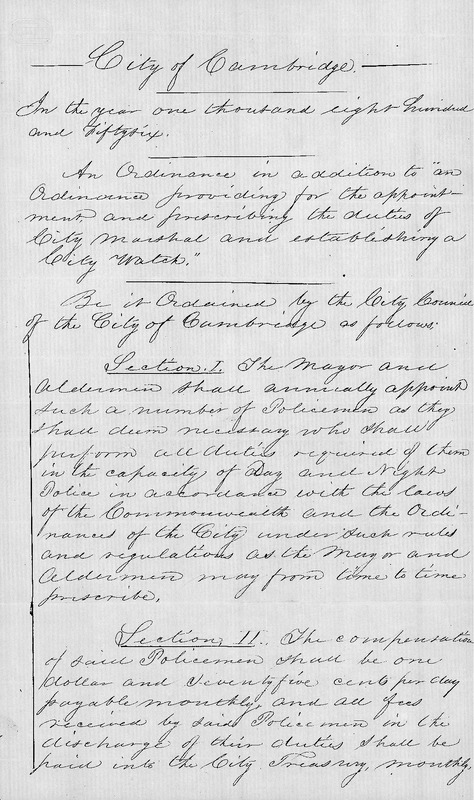 City of Cambridge.
In the year one thousand eight hundred
and fiftysix.
An Ordinance in addition to "an
Ordinance providing for the appoint-
ment and prescribing the duties of
City Marshal and establishing a
City Watch."
Be it Ordained by the City Council
of the City of Cambridge as follows:
Section. I. The Mayor and
Aldermen shall annually appoint
such a number of Policemen as they
shall dum necessary who shall
perform all duties required of them
in the capacity of Day and Night
Police in accordance with the laws
of the Commonwealth and the Ordi-
nances of the City under such rules
and regulations as the Mayor and
Aldermen may from time to time
prescribe.
Section. II. The compensation
of said Policemen shall be one
dollar and seventyfive cents per day
payable monthly, and all fees
received by said Policemen in the
discharge of their duties shall be
paid into the City Treasury, monthly.